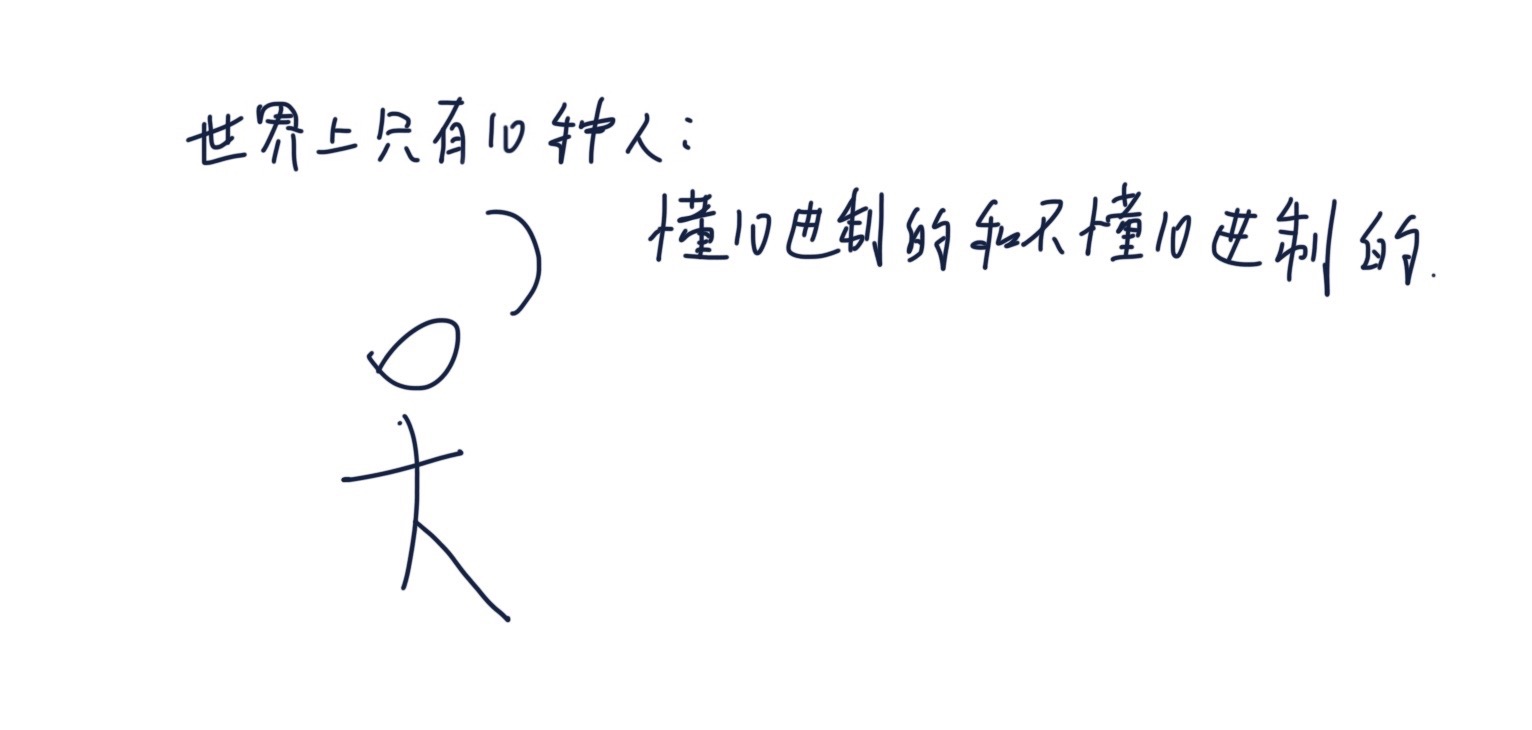 世界上只有10种人：
懂10进制的和不懂10进制的.